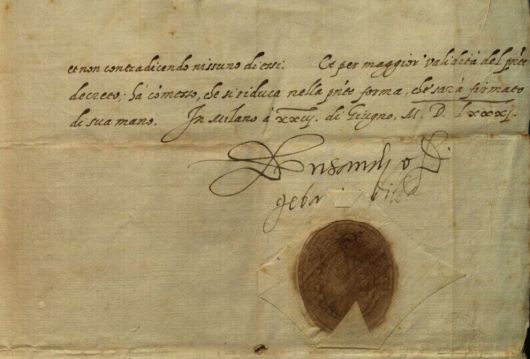 et non contradicendo nissuno di essi. Et per maggior validità del pñte
decreto, hà comesso, che si riduca nella pñte forma, che sarà firmato
di sua mano. In Milano à xxij. di Giugno, M. D. lxxxj.